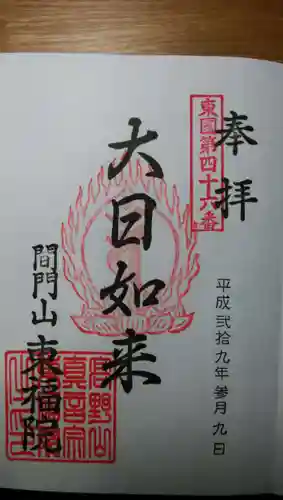 奉拝
東國第四十六番
平成弐拾九年参月九日
大日如来
間門山
東福院
高野山
真言宗